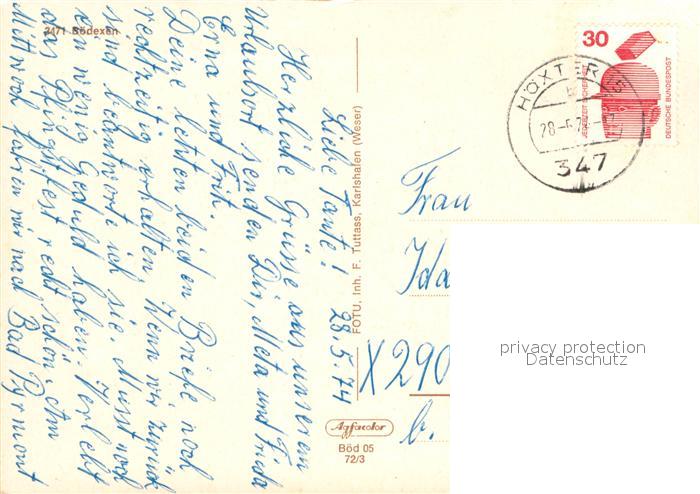 3471 Bödexen
28.5.74
Liebe Tante!
Herzliche Grüsse aus unserem
Urlaubsort senden Dir, Meta und Frieda
Erna und Fritz.
Deine letzten beiden Briefe noch
rechtzeitig erhalten. Wenn wir zurück
sind beantworte ich sie. Musst noch
ein wenig Geduld haben. Verlebt
das Pfingstfest recht schön. Am
Mittwoch fahren wir nach Bad Pyrmont
FOTU, Inh. F. Tuttass, Karlshafen (Weser)
Agfacolor
Böd 05
72/3
30
JEDERZEIT SICHERHEIT
DEUTSCHE BUNDESPOST
HÖXTER
28.-5.74
347
Frau
Ida
X 290
b.
privacy protection
Datenschutz